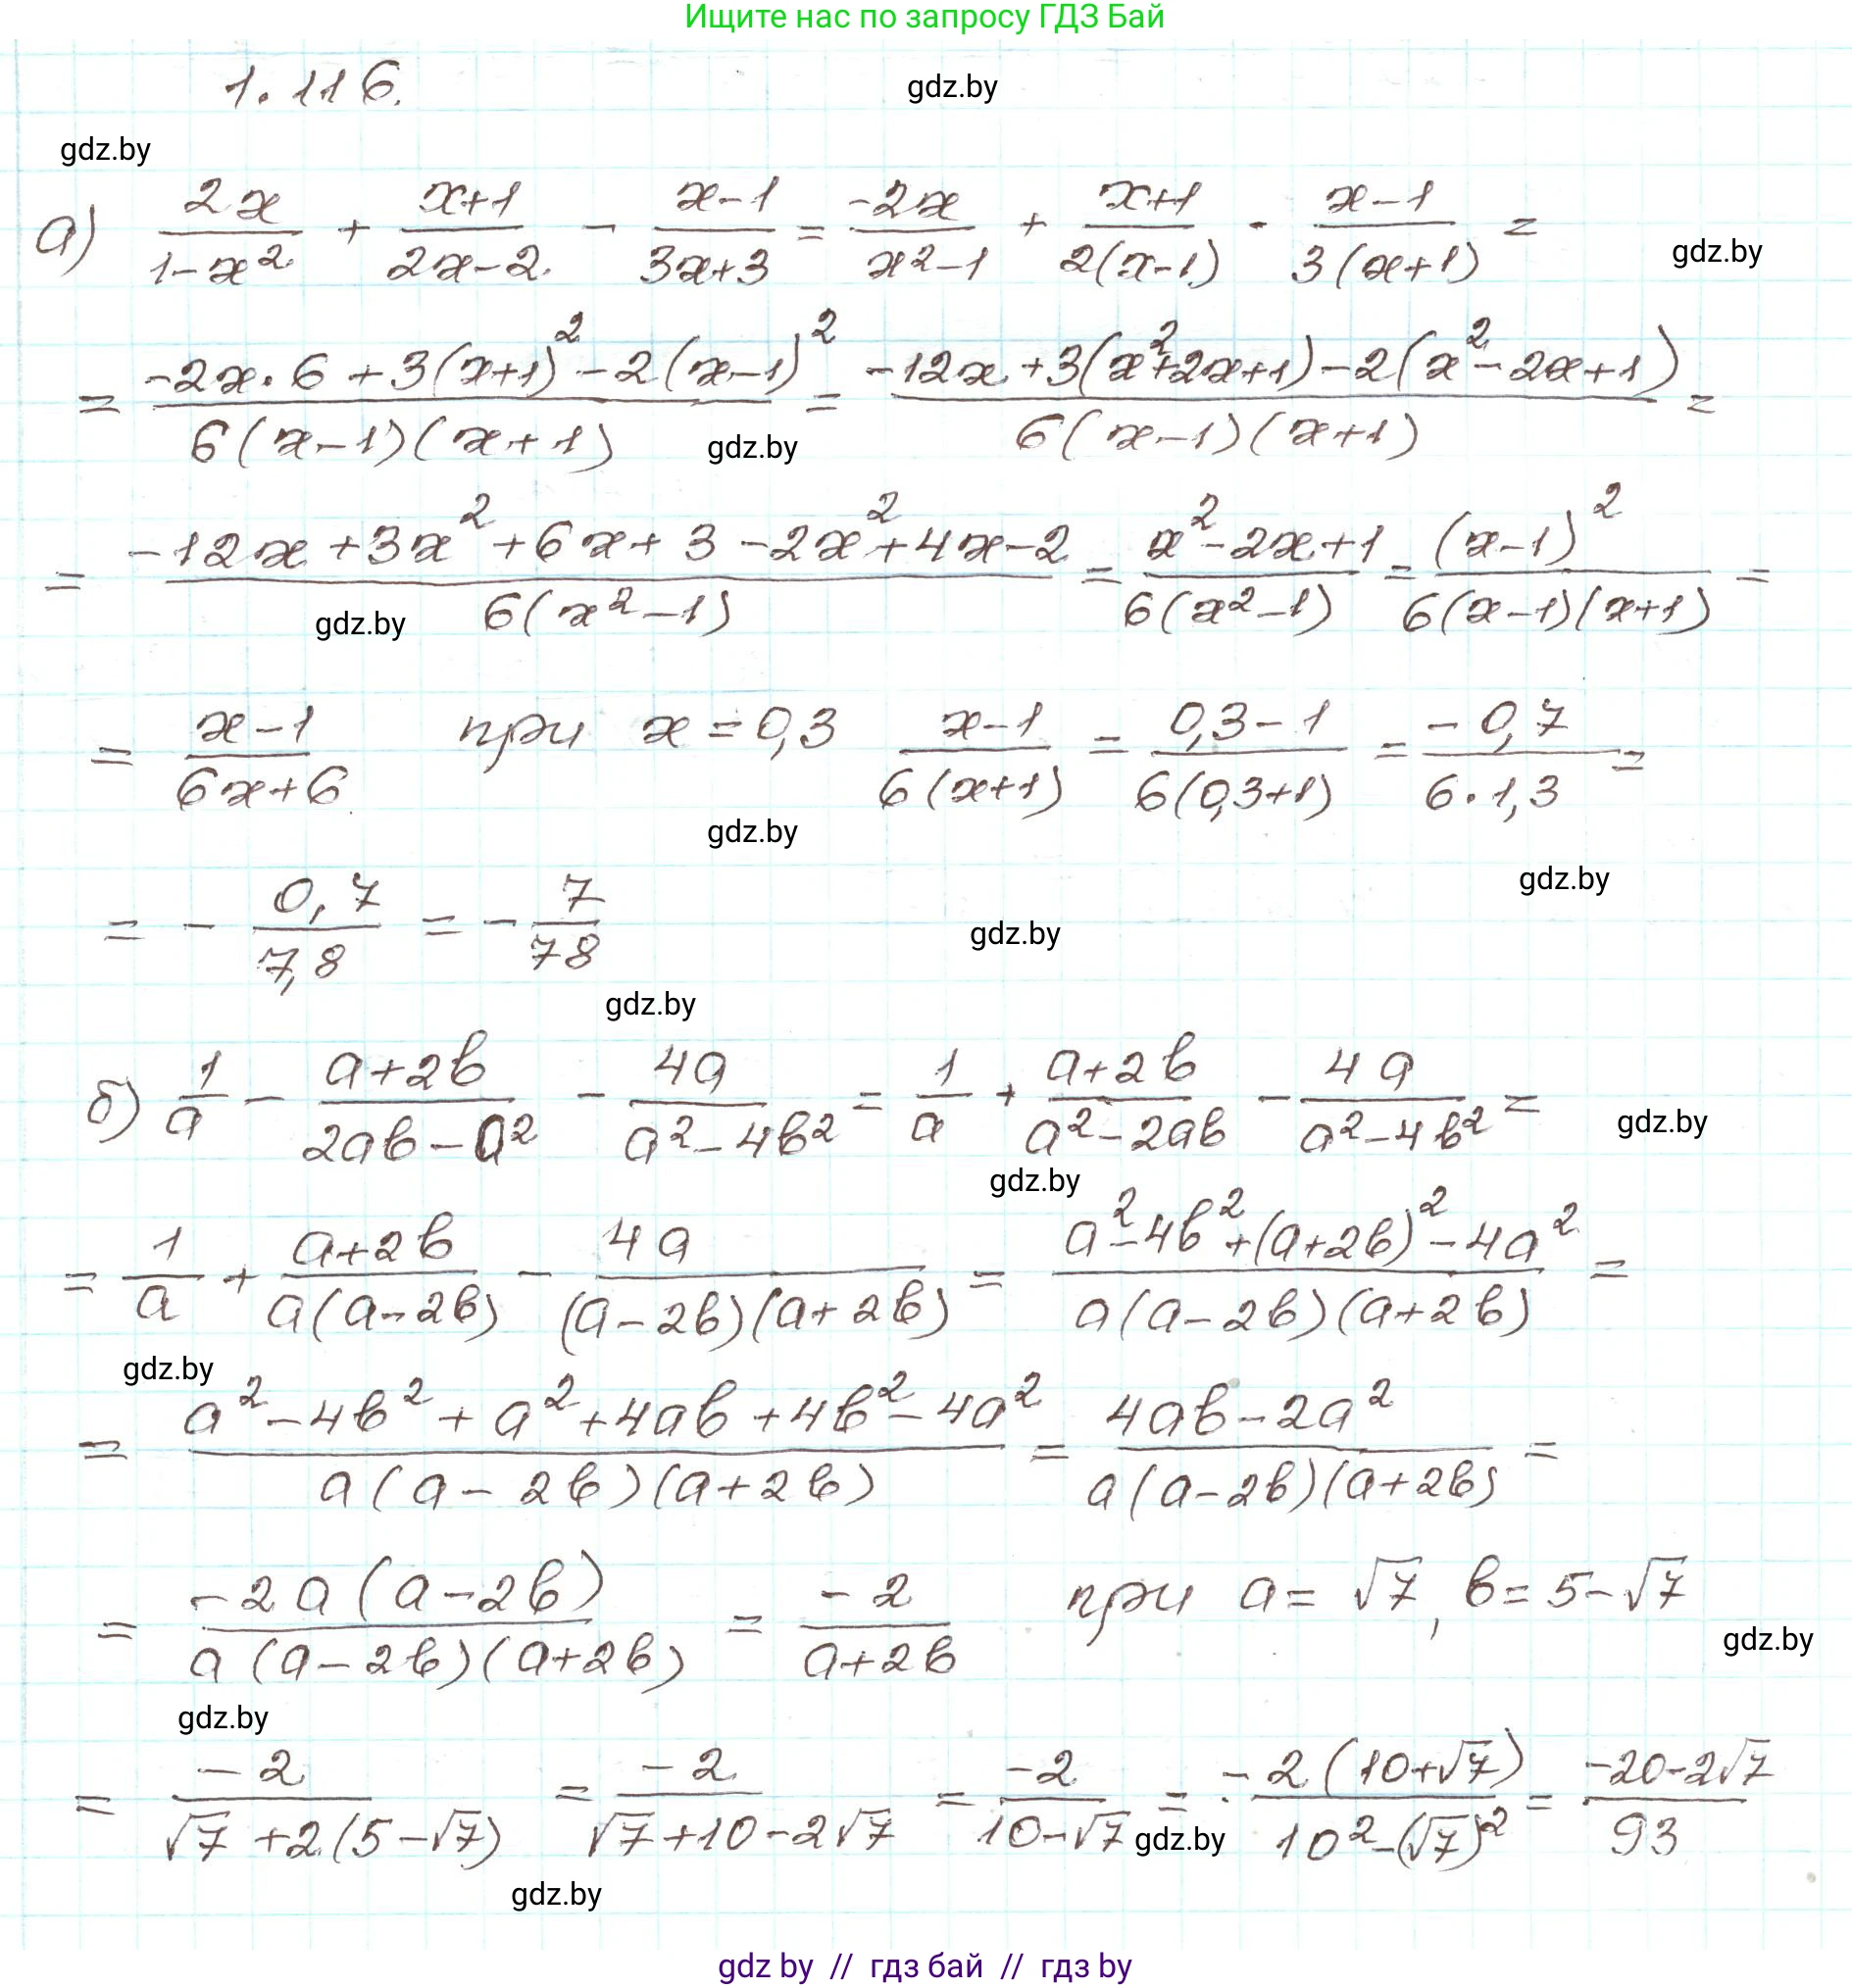 Ищите нас по запросу ГДЗ Бай
1.116.
gdz.by
gdz.by
а) 2x/(1-x²) + (x+1)/(2x-2) - (x-1)/(3x+3) = -2x/(x²-1) + (x+1)/(2(x-1)) - (x-1)/(3(x+1)) =
gdz.by
= (-2x·6+3(x+1)²-2(x-1)²)/(6(x-1)(x+1)) = (-12x+3(x²+2x+1)-2(x²-2x+1))/(6(x-1)(x+1)) =
gdz.by
= (-12x+3x²+6x+3-2x²+4x-2)/(6(x²-1)) = (x²-2x+1)/(6(x²-1)) = (x-1)²/(6(x-1)(x+1)) =
gdz.by
= (x-1)/(6x+6) при x=0,3 (x-1)/(6(x+1)) = (0,3-1)/(6(0,3+1)) = -0,7/(6·1,3) =
gdz.by
gdz.by
= - 0,7/7,8 = - 7/78
gdz.by
gdz.by
б) 1/a - (a+2b)/(2ab-a²) - 4a/(a²-4b²) = 1/a + (a+2b)/(a²-2ab) - 4a/(a²-4b²) =
gdz.by
gdz.by
= 1/a + (a+2b)/(a(a-2b)) - 4a/((a-2b)(a+2b)) = (a²-4b²+(a+2b)²-4a²)/(a(a-2b)(a+2b)) =
gdz.by
= (a²-4b²+a²+4ab+4b²-4a²)/(a(a-2b)(a+2b)) = (4ab-2a²)/(a(a-2b)(a+2b)) =
= -2a(a-2b)/(a(a-2b)(a+2b)) = -2/(a+2b) при a=√7, b=5-√7
gdz.by
gdz.by
= -2/(√7+2(5-√7)) = -2/(√7+10-2√7) = -2/(10-√7) = -2(10+√7)/(10²-(√7)²) = (-20-2√7)/93
gdz.by
gdz.by
gdz by // гдз бай // гдз by